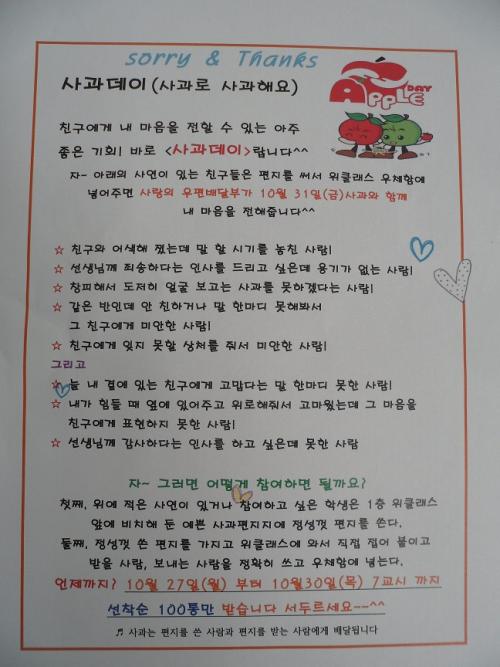 sorry & Thanks
사과데이(사과로 사과해요)
APPLE DAY
친구에게 내 마음을 전할 수 있는 아주
좋은 기회! 바로 <사과데이>랍니다^^
자~ 아래의 사연이 있는 친구들은 편지를 써서 위클래스 우체함에
넣어주면 사랑의 우편배달부가 10월 31일(금)사과와 함께
내 마음을 전해줍니다^^
☆ 친구와 어색해 졌는데 말 할 시기를 놓친 사람!
☆ 선생님께 죄송하다는 인사를 드리고 싶은데 용기가 없는 사람!
☆ 창피해서 도저히 얼굴 보고는 사과를 못하겠다는 사람!
☆ 같은 반인데 안 친하거나 말 한마디 못해봐서
그 친구에게 미안한 사람!
☆ 친구에게 잊지 못할 상처를 줘서 미안한 사람!
그리고
☆ 늘 내 곁에 있는 친구에게 고맙다는 말 한마디 못한 사람!
☆ 내가 힘들 때 옆에 있어주고 위로해줘서 고마웠는데 그 마음을
친구에게 표현하지 못한 사람!
☆ 선생님께 감사하다는 인사를 하고 싶은데 못한 사람
자~ 그러면 어떻게 참여하면 될까요?
첫째, 위에 적은 사연이 있거나 참여하고 싶은 학생은 1층 위클래스
앞에 비치해 둔 예쁜 사과편지지에 정성껏 편지를 쓴다.
둘째, 정성껏 쓴 편지를 가지고 위클래스에 와서 직접 접어 붙이고
받을 사람, 보내는 사람을 정확히 쓰고 우체함에 넣는다.
언제까지? 10월 27일(월) 부터 10월30일(목) 7교시 까지
선착순 100통만 받습니다 서두르세요--^^
♬ 사과는 편지를 쓴 사람과 편지를 받는 사람에게 배달됩니다